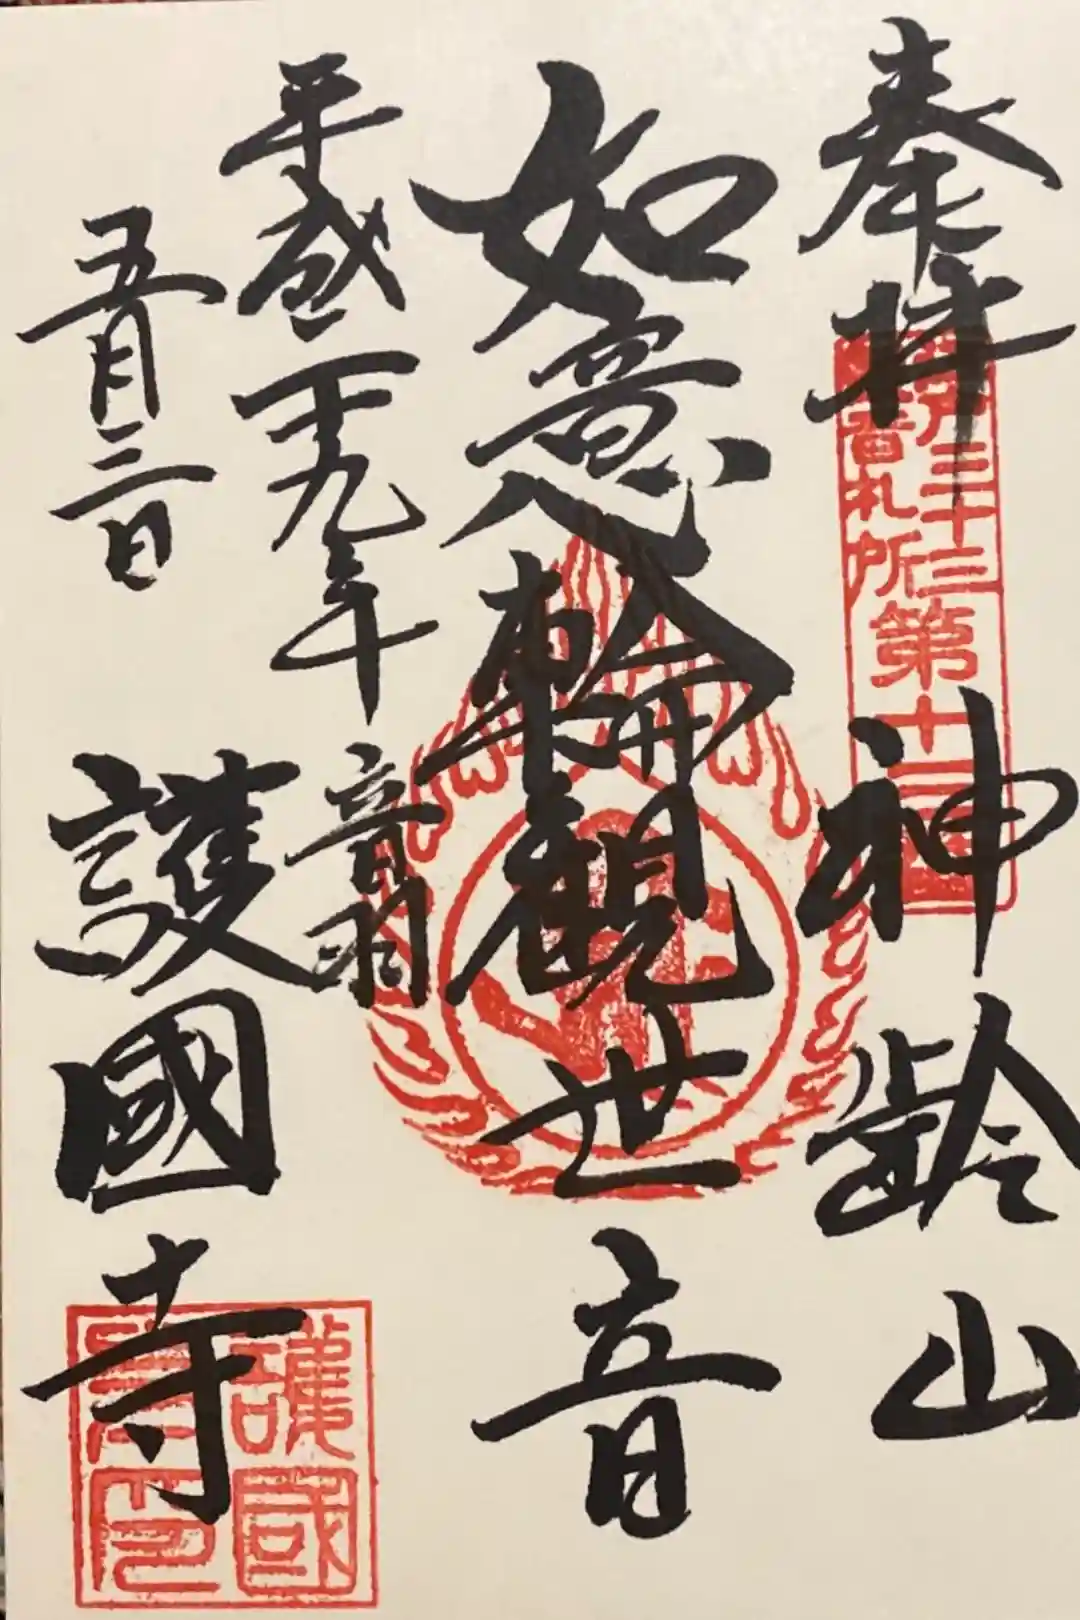 奉拝
神齢山
江戸三十三
観音札所
第十三番
如意輪観世音
平成二十九年
五月三日
音羽
護國寺
護國
寺印